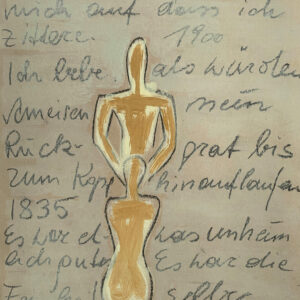 mich auf dass ich
zittere. 1900
Ich bebe. als würden
Ameisen mein
Rück- grat bis
zum Kopf hinauflaufen
1835
Es war et- was unheim
Es war die